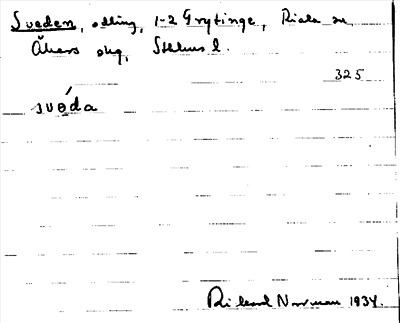 Sveden, odling, 1-2 Grytinge, Riala sn,
Åkers skg, Sthlms l.
325
svǝ́da
Rikard Norrman 1934.